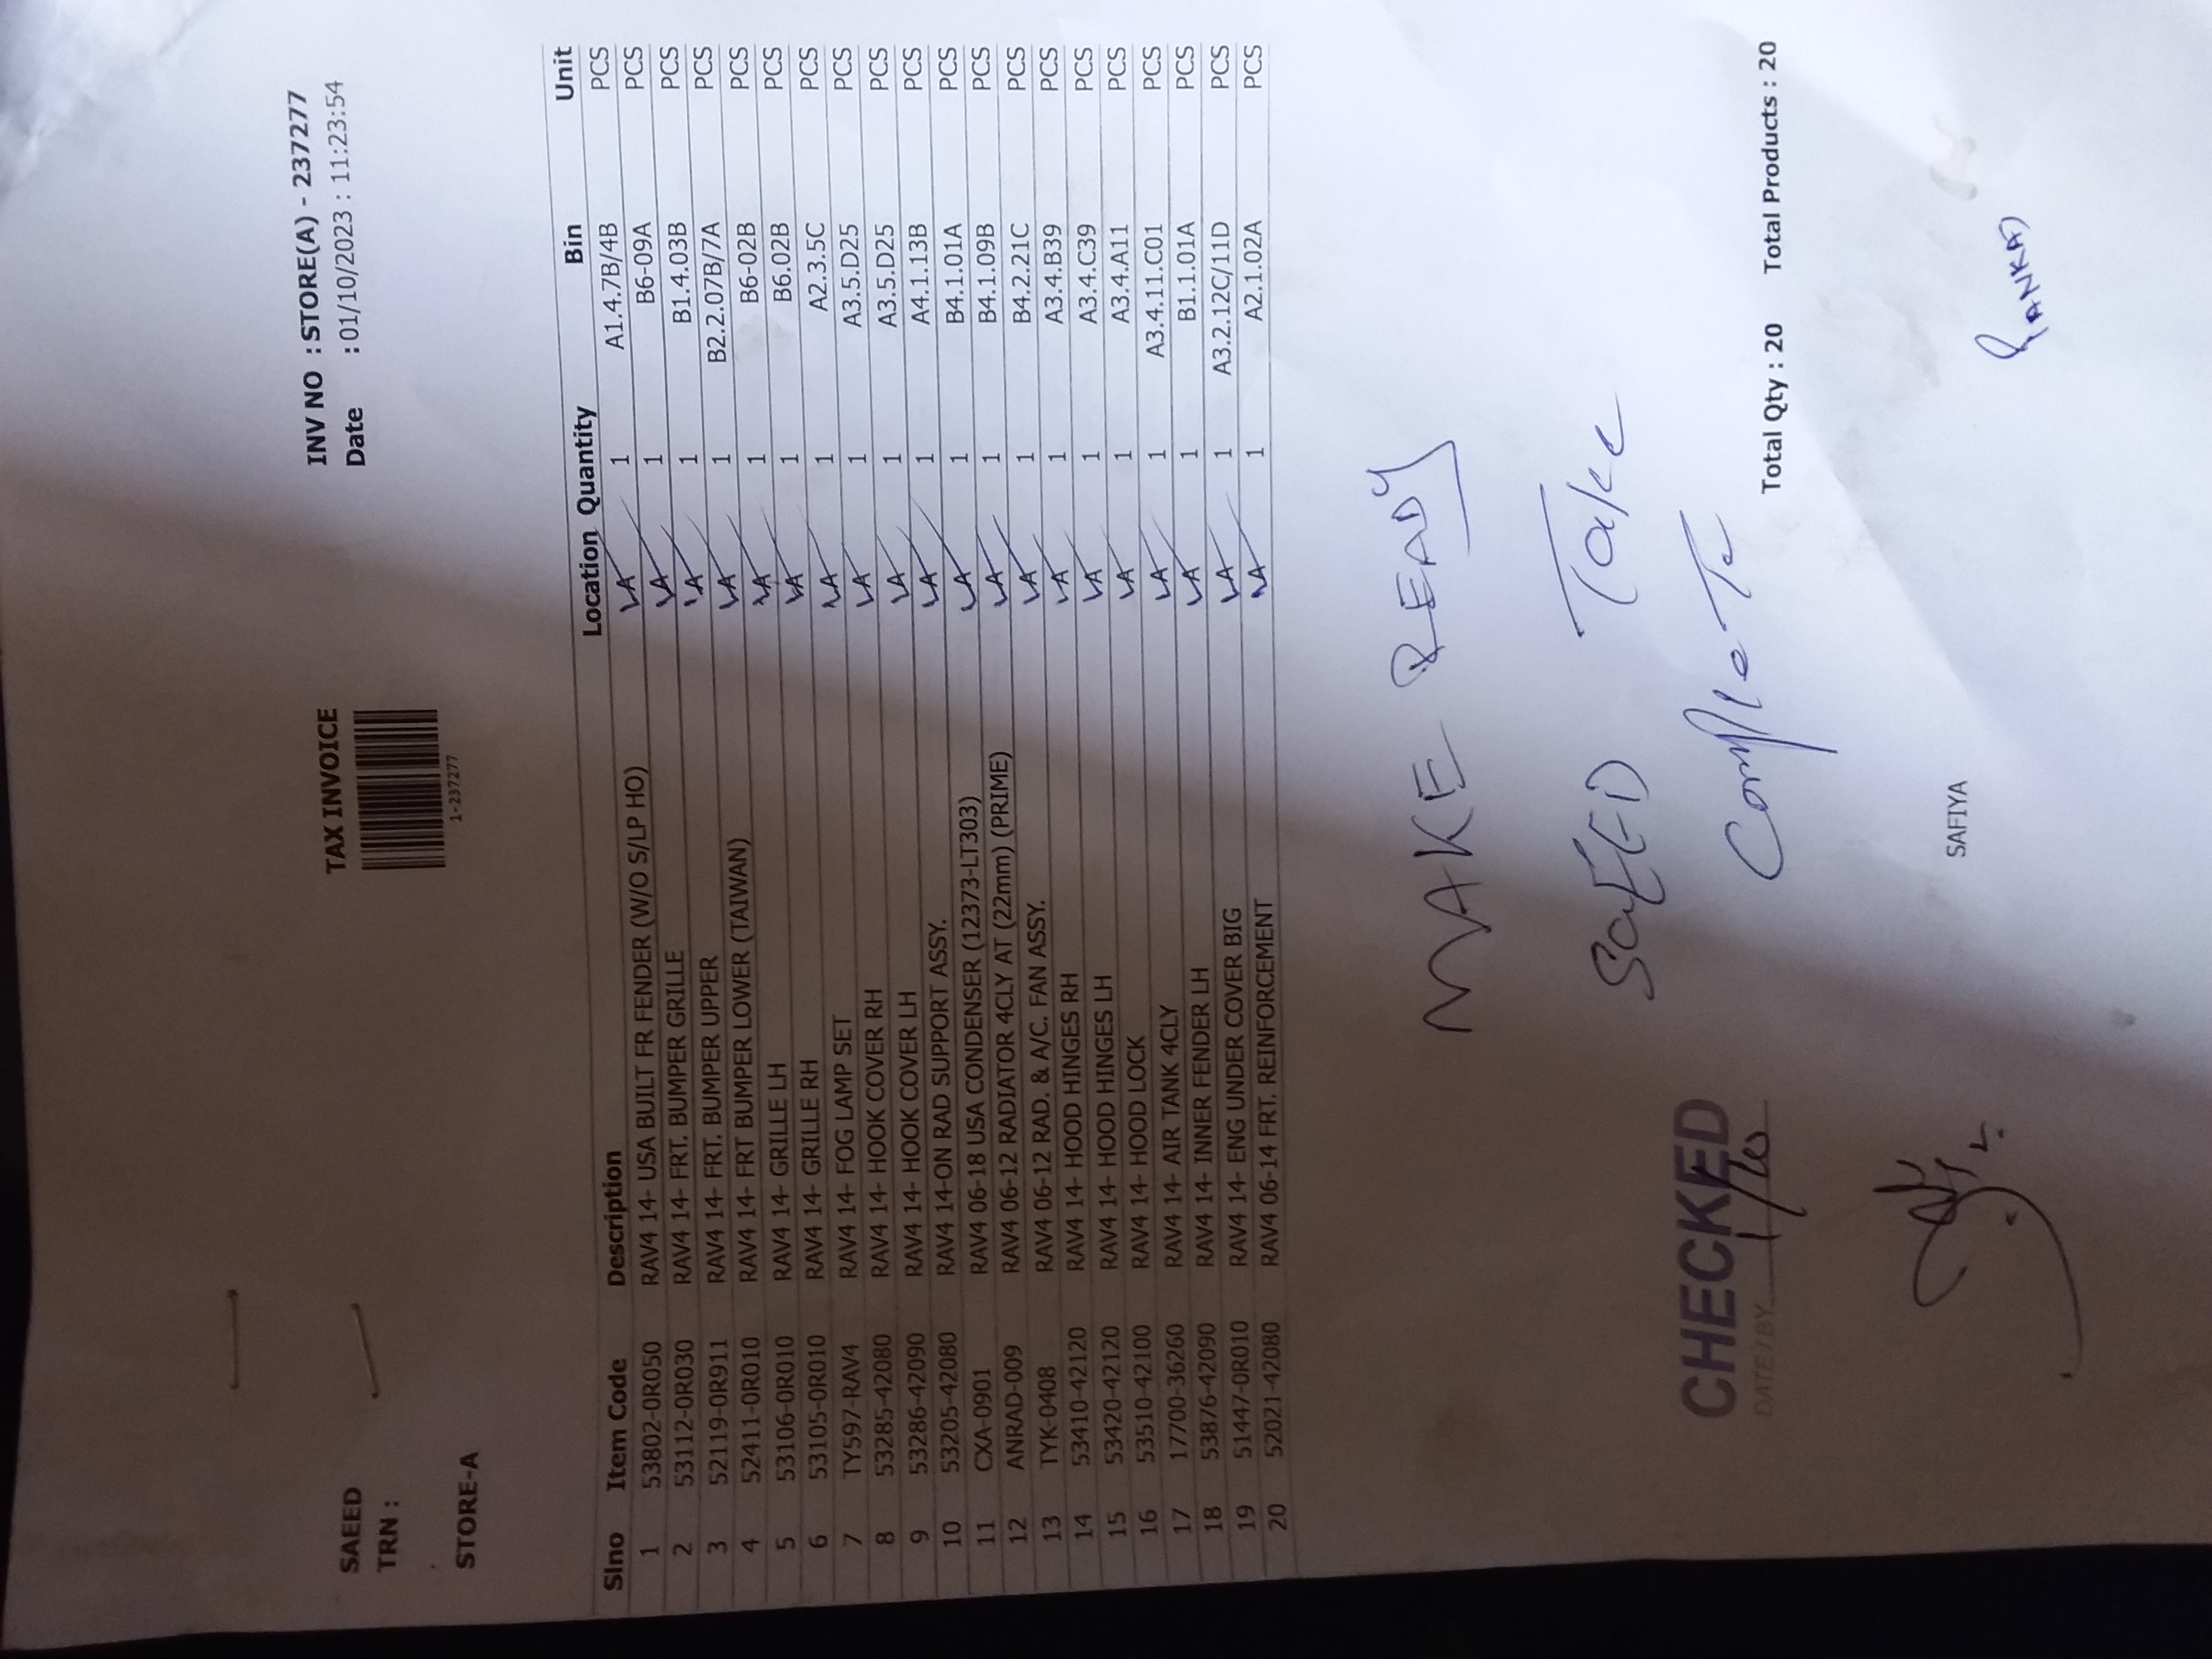 TAX INVOICE
INV NO : STORE(A) - 237277
SAEED
Date : 01/10/2023 : 11:23:54
TRN :
1-237277
STORE-A
Slno Item Code Description Location Quantity Bin Unit
1 53802-0R050 RAV4 14- USA BUILT FR FENDER (W/O S/LP HO) A 1 A1.4.7B/4B PCS
2 53112-0R030 RAV4 14- FRT. BUMPER GRILLE A 1 B6-09A PCS
3 52119-0R911 RAV4 14- FRT. BUMPER UPPER A 1 B1.4.03B PCS
4 52411-0R010 RAV4 14- FRT BUMPER LOWER (TAIWAN) A 1 B2.2.07B/7A PCS
5 53106-0R010 RAV4 14- GRILLE LH A 1 B6-02B PCS
6 53105-0R010 RAV4 14- GRILLE RH A 1 B6.02B PCS
7 TY597-RAV4 RAV4 14- FOG LAMP SET A 1 A2.3.5C PCS
8 53285-42080 RAV4 14- HOOK COVER RH A 1 A3.5.D25 PCS
9 53286-42090 RAV4 14- HOOK COVER LH A 1 A3.5.D25 PCS
10 53205-42080 RAV4 14-ON RAD SUPPORT ASSY. A 1 A4.1.13B PCS
11 CXA-0901 RAV4 06-18 USA CONDENSER (12373-LT303) A 1 B4.1.01A PCS
12 ANRAD-009 RAV4 06-12 RADIATOR 4CLY AT (22mm) (PRIME) A 1 B4.1.09B PCS
13 TYK-0408 RAV4 06-12 RAD. & A/C. FAN ASSY. A 1 B4.2.21C PCS
14 53410-42120 RAV4 14- HOOD HINGES RH A 1 A3.4.B39 PCS
15 53420-42120 RAV4 14- HOOD HINGES LH A 1 A3.4.C39 PCS
16 53510-42100 RAV4 14- HOOD LOCK A 1 A3.4.A11 PCS
17 17700-36260 RAV4 14- AIR TANK 4CLY A 1 A3.4.11.C01 PCS
18 53876-42090 RAV4 14- INNER FENDER LH A 1 B1.1.01A PCS
19 51447-0R010 RAV4 14- ENG UNDER COVER BIG A 1 A3.2.12C/11D PCS
20 52021-42080 RAV4 06-14 FRT. REINFORCEMENT A 1 A2.1.02A PCS
MAKE READY
SaEED Take
Complete
CHECKED
DATE / BY 1/10
Total Qty : 20 Total Products : 20
SAFIYA